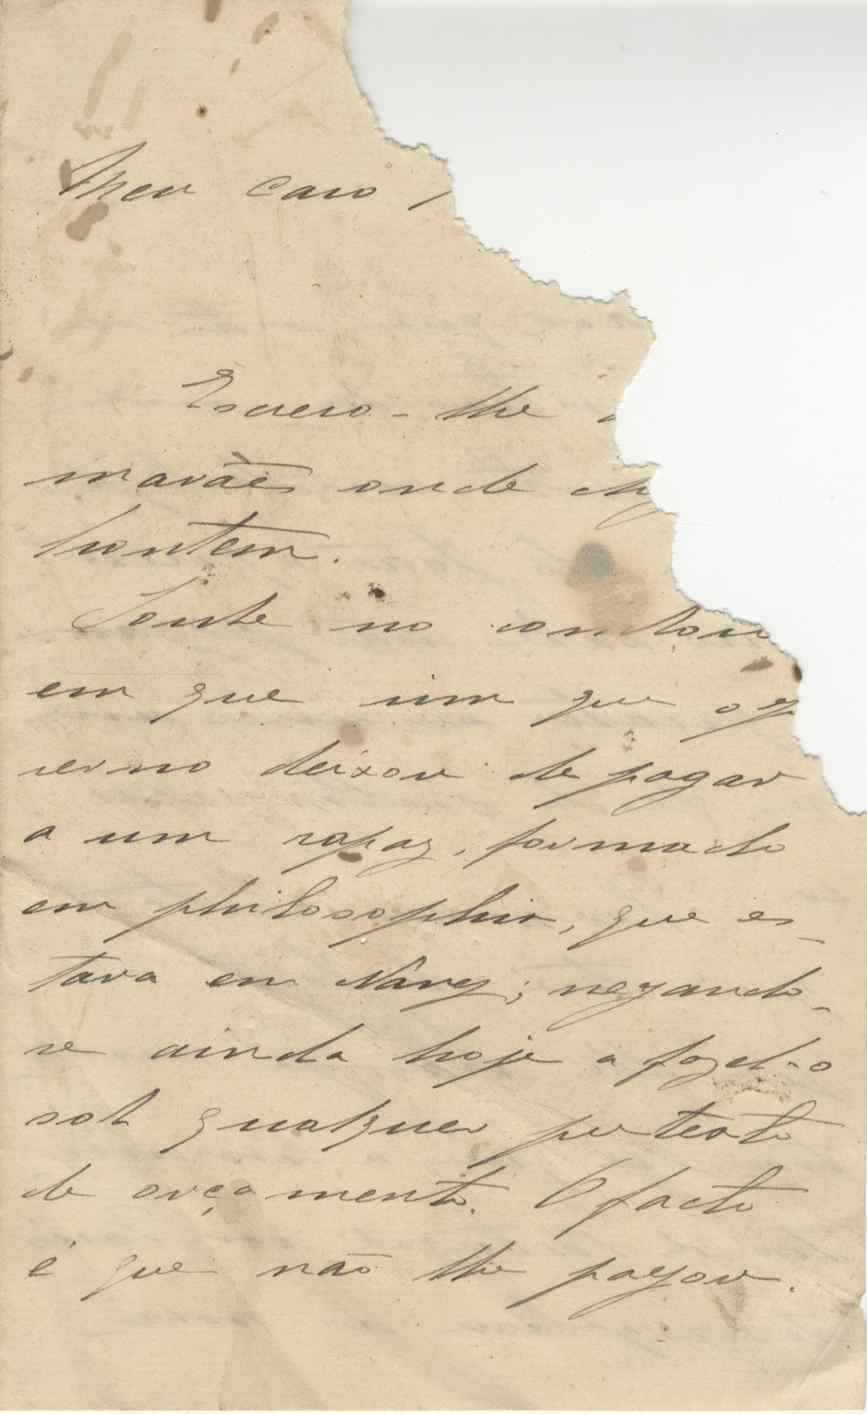 Meu caro
Escrevo-lhe
marães onde
hontem.
Soube no
em que um que o g
verno deixou de pagar
a um rapaz, formado
em philosophia, que es-
tava em Nancy; negando-
se ainda hoje a fazel-o
sob qualquer pretexto
de orçamento. O facto
é que não lhe pagou.